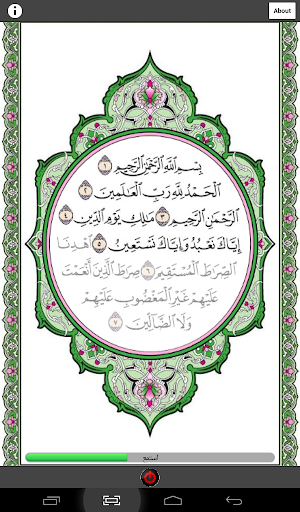 About
بِسْمِ ٱللَّهِ ٱلرَّحْمَٰنِ ٱلرَّحِيمِ ١
ٱلْحَمْدُ لِلَّهِ رَبِّ ٱلْعَٰلَمِينَ ٢
ٱلرَّحْمَٰنِ ٱلرَّحِيمِ ٣ مَٰلِكِ يَوْمِ ٱلدِّينِ ٤
إِيَّاكَ نَعْبُدُ وَإِيَّاكَ نَسْتَعِينُ ٥ ٱهْدِنَا
ٱلصِّرَٰطَ ٱلْمُسْتَقِيمَ ٦ صِرَٰطَ ٱلَّذِينَ أَنْعَمْتَ
عَلَيْهِمْ غَيْرِ ٱلْمَغْضُوبِ عَلَيْهِمْ
وَلَا ٱلضَّآلِّينَ ٧
أستمع